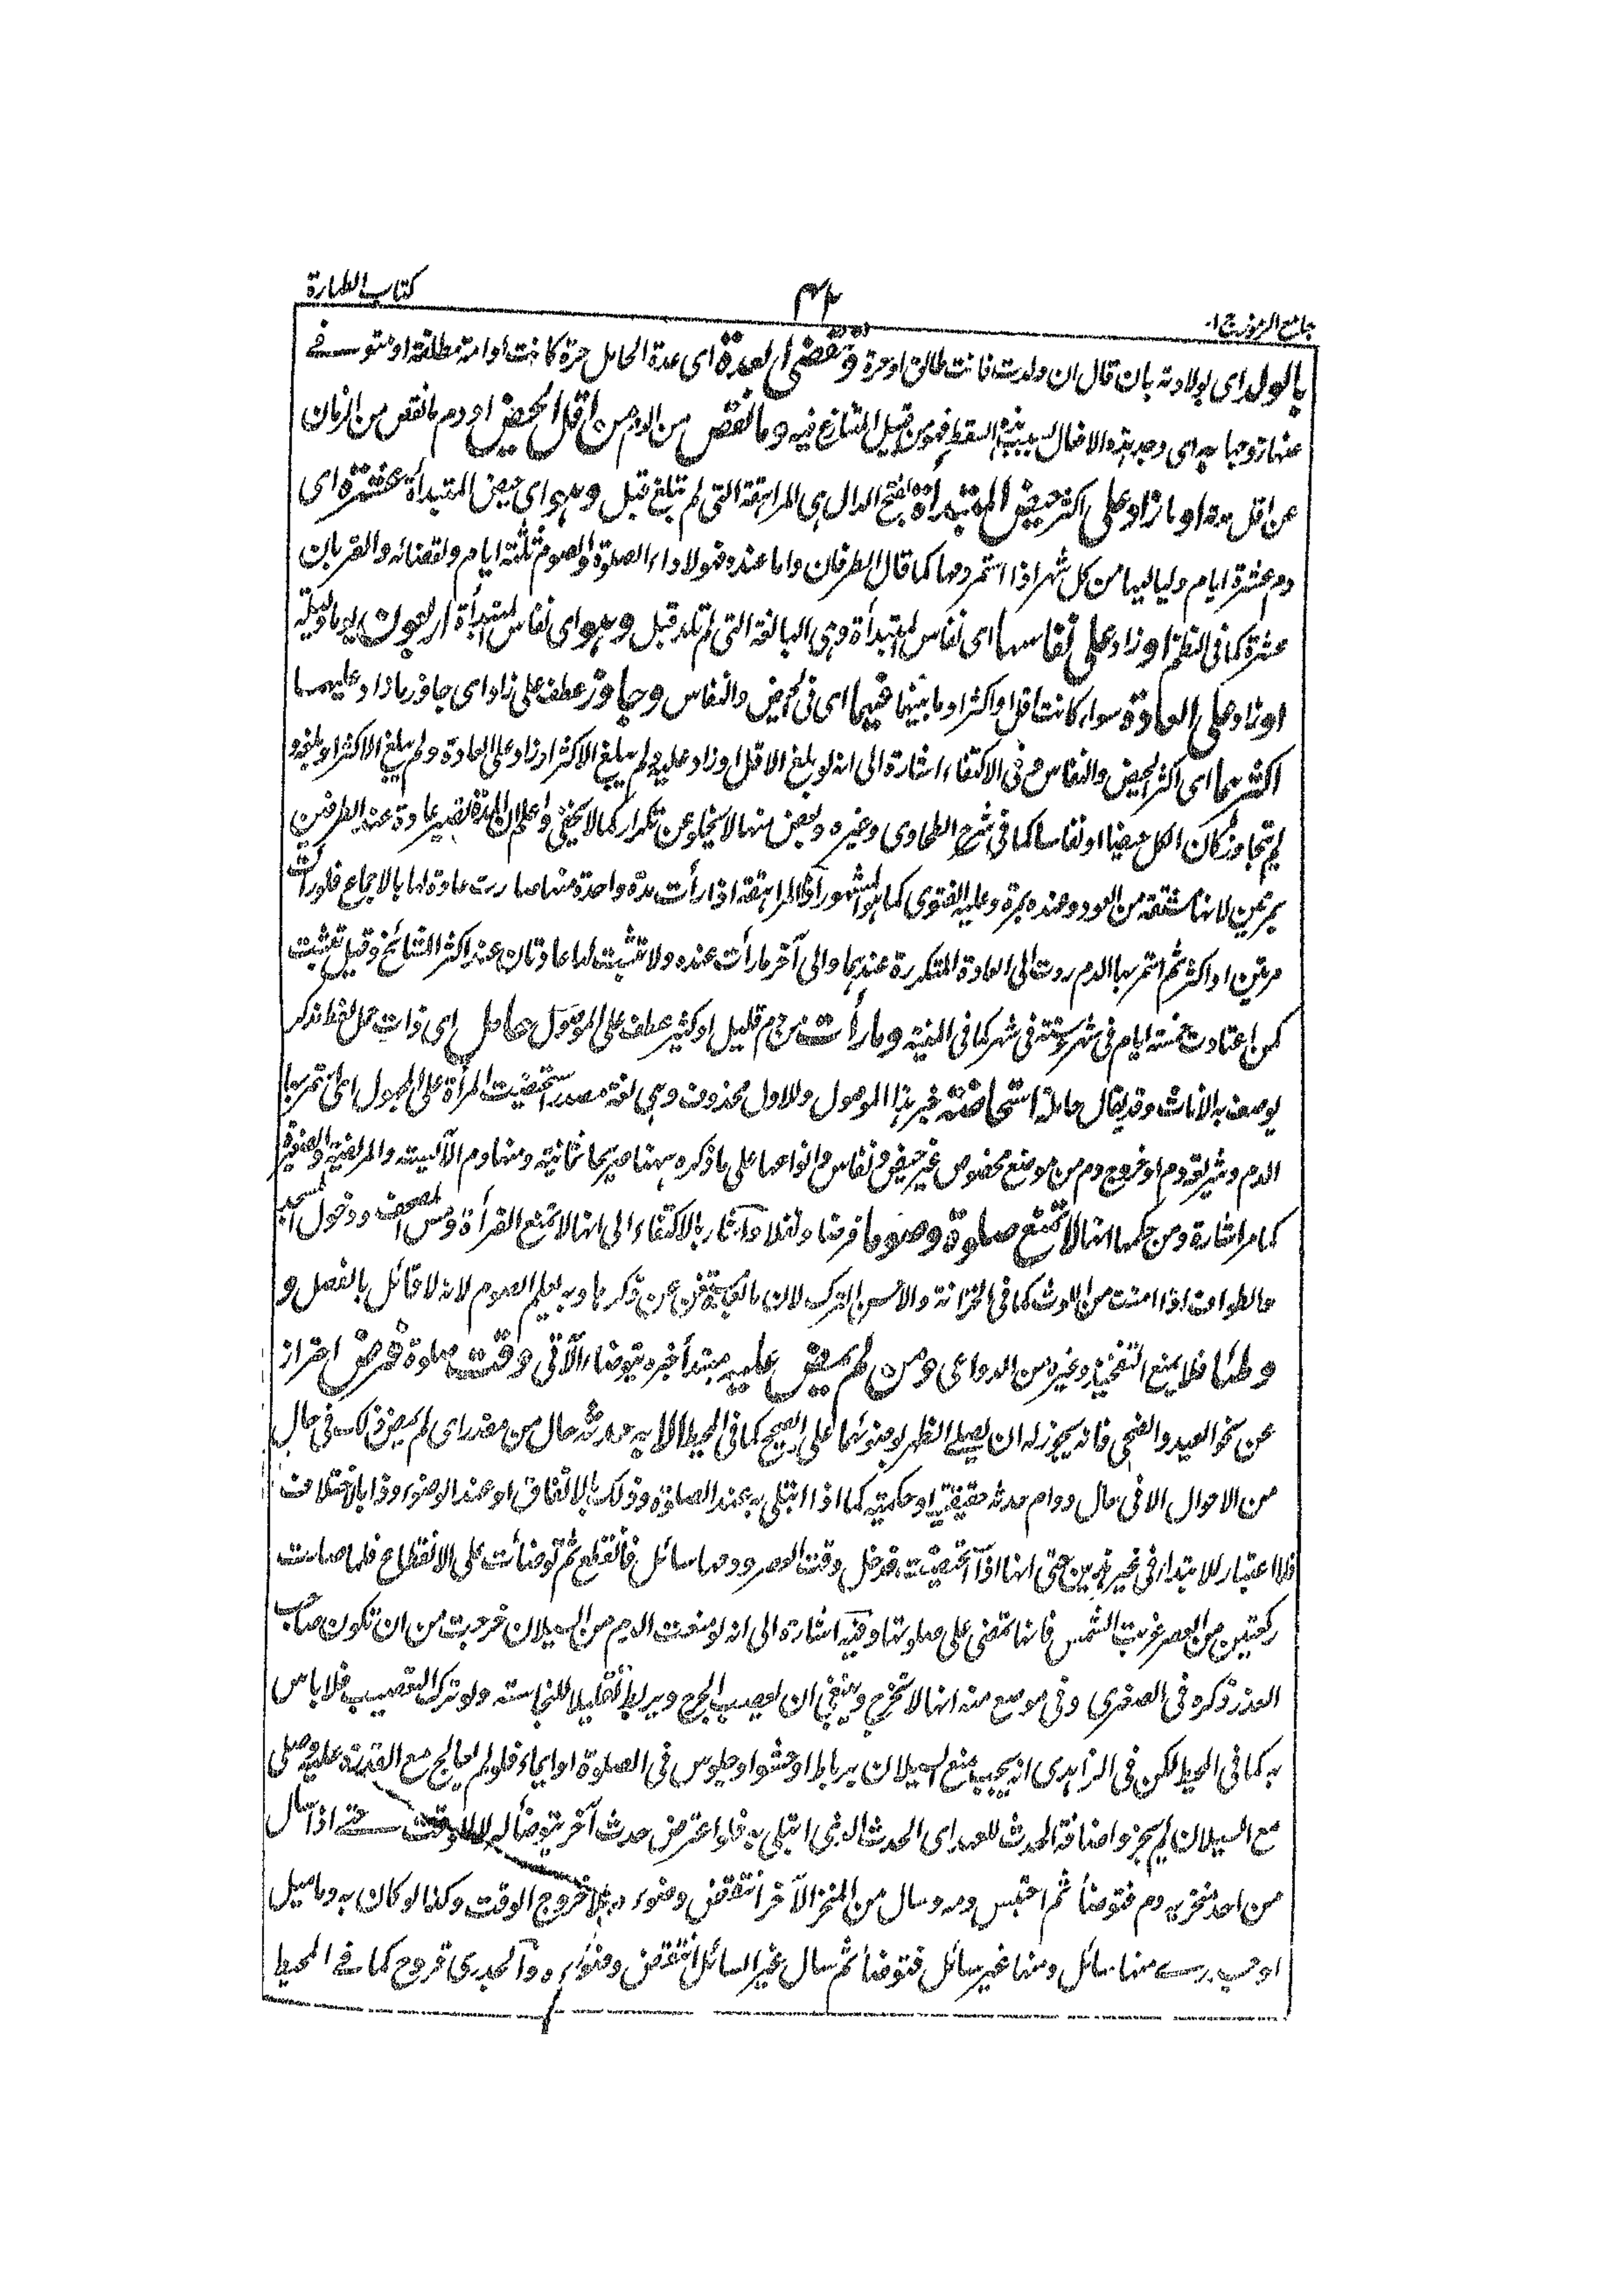 جامع الرموز ج ا
٣٤
كتاب الطهارة
بالولد اى بولادته بان قال ان ولدت فانت طالق او حرة وتنقضى العدة اى عدة الحامل حرة كانت او امة مطلقة او متوفى
عنها زوجها به اى وجد هذه الافعال بسبب هذه السقط فهو من قبيل التنازع فيه وما نقص من الدم من اقل الحيض او دم ما نقص من الزمان
عن اقل مدة او ما زاد على اكثر حيض المبتدأة بفتح الدال هى المراهقة التى لم تبلغ قبل وهو اى حيض المبتدأة عشرة اى
دم عشرة ايام ولياليها من كل شهر اذا استمر دمها كما قال الطرفان واما عنده فهو لاداء الصلوة والصوم ثلثة ايام ولقضائه والقربان
عشرة كما فى النظم او زاد على نفاسها اى نفاس المبتدأة وهى البالغة التى لم تلد قبل وهو اى نفاس المبتدأة اربعون يوما وليلة
او زاد على العادة سواء كانت اقل او اكثر او ما بينهما فيهما اى فى الحيض والنفاس وجاوز عطف على زاد اى جاوز ما زاد عليهما
اكثرهما اى اكثر الحيض والنفاس وفى الاكتفاء اشارة الى انه لو بلغ الاقل او زاد عليه ولم يبلغ الاكثر او زاد على العادة ولم يبلغ الاكثر او بلغه و
لم يتجاوز كان الكل حيضا او نفاسا كما فى شرح الطحاوى وغيره وبعض منها لا يخلو عن تكرار كما لا يخفى واعلم ان المدة تصير عادة عند الطرفين
بمرتين لانها مشتقة من العود وعنده بمرة وعليه الفتوى كما هو المشهور واما المراهقة اذا رأت مدة واحدة منها صارت عادة لها بالاجماع فلو رأت
مرتين او اكثر ثم استمر بها الدم ردت الى العادة المتكررة عندهما والى آخر ما رأت عنده ولا تثبت لها عادتان عند اكثر المشائخ وقيل تثبت
كمن اعتادت خمسة ايام فى شهر وستة فى شهر كما فى المنية وما رأت من دم قليل او كثير عطف على الموصول حامل اى ذات حمل لفظ مذكر
يوصف به الاناث وقد يقال حاملة استحاضة خبر هذا الموصول وللاول محذوف وهى لغة مصدر استحيضت المرأة على المجهول اى استمر بها
الدم وشريعة دم او خروج دم من موضع مخصوص غير حيض ونفاس وانواعها على ما ذكره ههنا صريحا ثمانية ومنها دم الآئسة والمريضة والصغيرة
كما مر اشارة ومن حكمها انها لا تمنع صلوة وصوما فرضا ونفلا واشار بالاكتفاء الى انها لا تمنع القرأة ومس المصحف ودخول المسجد
والطواف اذا امنت من اللوث كما فى الخزانة والاحسن الترك لان ما قبله يغنى عن ذكرها وبه يعلم الصوم لانه لا قائل بالفصل و
وطئا فلا يمنع التفخيذ وغيره من الدواعى ومن لم يمض عليه مبتدأ خبره يتوضأ الآتى وقت صلوة فرض احتراز
عن نحو العيد والضحى فانه يجوز له ان يصلى الظهر بوضوئهما على الصحيح كما فى المحيط الا به حدثه حال من مقدر اى لم يمض ذلك فى حال
من الاحوال الا فى حال دوام حدثه حقيقية او حكمية كما اذا ابتلى به عند الصلوة وذلك بالاتفاق او عند الوضوء وذا بالاختلاف
فلا اعتبار للابتداء فى غير هذين حتى انها اذا استحيضت فدخل وقت العصر ودمها سائل فانقطع ثم توضأت على الانقطاع فلما صلت
ركعتين من العصر غربت الشمس فانها تمضى على صلوتها وفيه اشارة الى انه لو منعت الدم من السيلان خرجت من ان تكون صاحب
العذر ذكره فى الصغرى وفى موضع منه انها لا تخرج وينبغى ان يعصب الجرح ويربط تقليلا للنجاسة ولو ترك التعصيب فلا باس
به كما فى المحيط لكن فى الزاهدى انه يجب منع السيلان برباط او حشو او جلوس فى الصلوة او ايماء فلو لم يعالج مع القدرة عليه وصلى
مع السيلان لم يجز واضافة الحدث للعهد اى الحدث الذى ابتلى به فلو اعترض حدث آخر يتوضأ له لا للوقت حتى اذا سال
من احد منخريه دم فتوضأ ثم احتبس دمه وسال من المنخر الآخر انتقض وضوءه بلا خروج الوقت وكذا لو كان به دماميل
او جدرى منها سائل ومنها غير سائل فتوضأ ثم سال غير السائل انتقض وضوءه والجدرى قروح كما فى المحيط